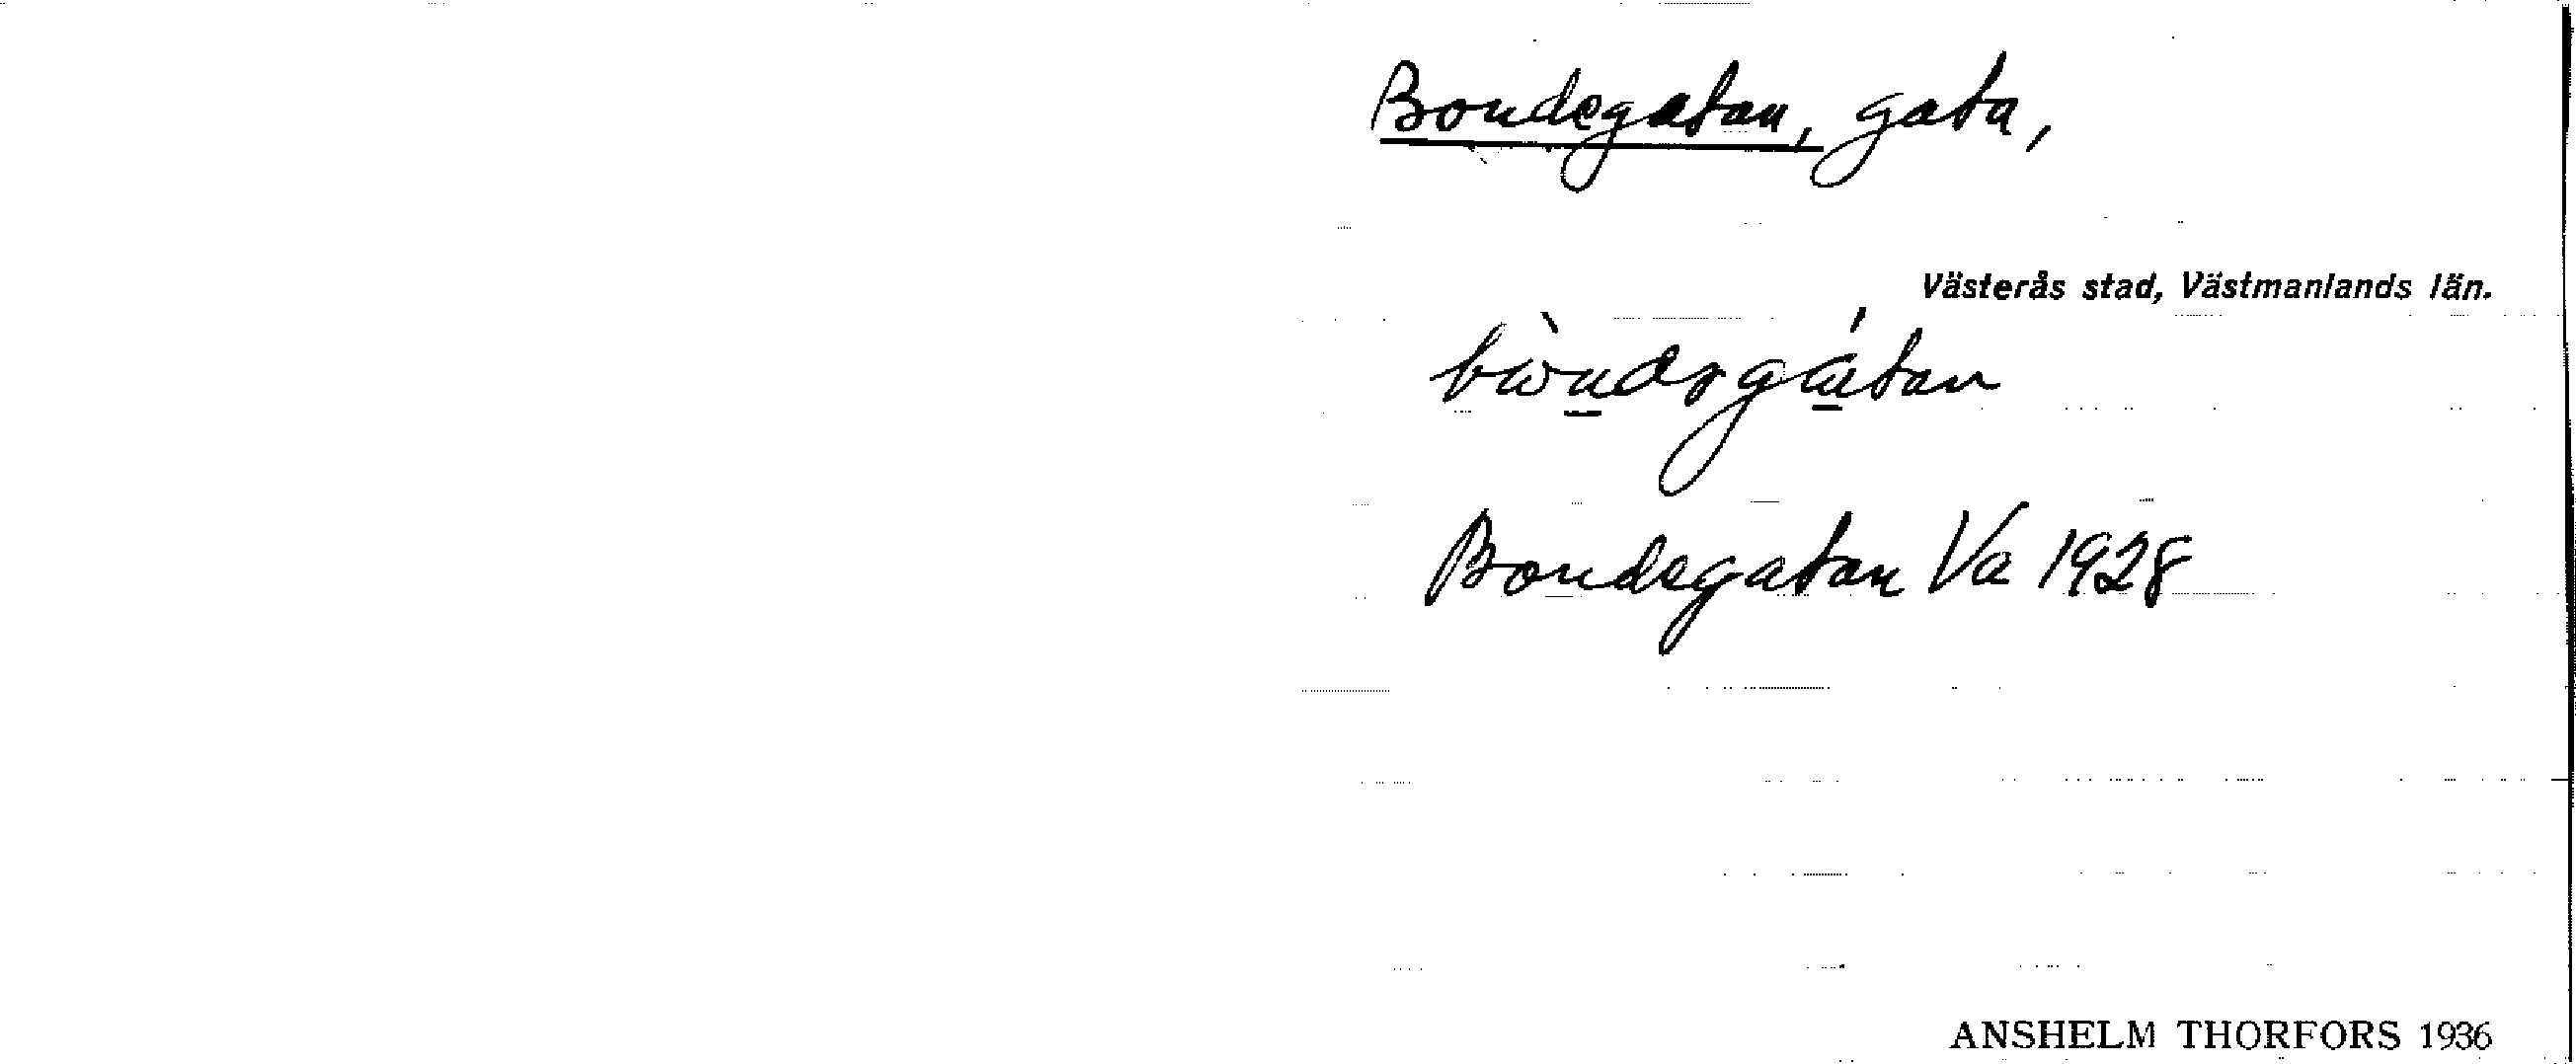 Bondegatan, gata,
Västerås stad, Västmanlands län.
bωndəgatan
Bondegatan Va 1928
ANSHELM THORFORS 1936